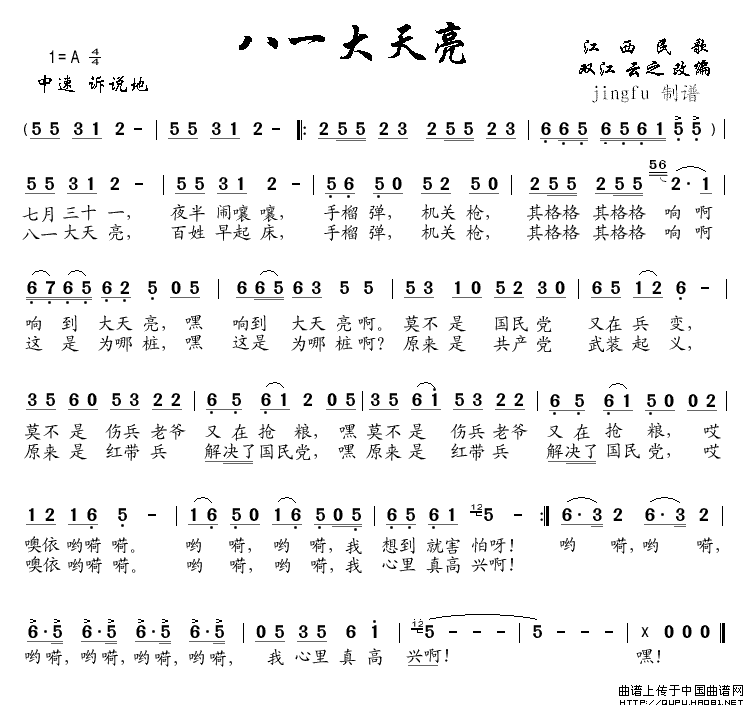 八一大天亮
1=A 4/4
中速 诉说地
江西民歌
双江 云之 改编
jingfu 制谱
(55 31 2 - | 55 31 2 - |: 255 23 255 23 | 665 6561 5 5) |
55 31 2 - | 55 31 2 - | 5 6 50 65 50 | 255 255 56 2·1 |
七月三十一，夜半闹嚷嚷，手榴弹，机关枪，其格格其格格响啊
八一大天亮，百姓早起床，手榴弹，机关枪，其格格其格格响啊
6765 62 5 05 | 665 63 5 5 | 53 10 52 30 | 65 12 6 - |
响到大天亮，嘿响到大天亮啊。莫不是国民党又在兵变，
这是为哪桩，嘿这是为哪桩啊？原来是共产党武装起义，
35 60 53 22 | 65 61 2 05 | 35 61 53 22 | 65 61 50 02 |
莫不是伤兵老爷又在抢粮，嘿莫不是伤兵老爷又在抢粮，哎
原来是红带兵解决了国民党，嘿原来是红带兵解决了国民党，哎
12 16 5 - | 16 50 16 505 | 65 61 12 5 - :| 6·3 2 6·3 2 |
噢依哟嗬嗬。哟嗬，哟嗬，我想到就害怕呀！哟嗬，哟嗬，
噢依哟嗬嗬。哟嗬，哟嗬，我心里真高兴啊！
6·5 6·5 6·5 6·5 | 05 35 6 1 | 12 5 - - - | 5 - - - | X 0 0 0 ‖
哟嗬，哟嗬，哟嗬，哟嗬，我心里真高兴啊！嘿！
曲谱上传于中国曲谱网
HTTP://QUPU.HAO81.NET